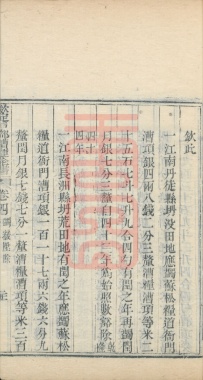 欽此
一江南丹徒縣坍没田地應蠲蘇松糧道衙門
漕項銀四兩八錢一分三釐漕糧漕項等米二
十五石七斗七升九合四勺有閏之年再蠲閏
月銀七分三釐自四十二年爲始照數豁除
四十
四年
一江南長洲縣坍荒田地有閏之年應蠲蘇松
糧道衙門漕項銀二百一十七兩六錢六分九
釐閏月銀七錢七分一釐漕糧漕項等米三百
卷四
蠲緩